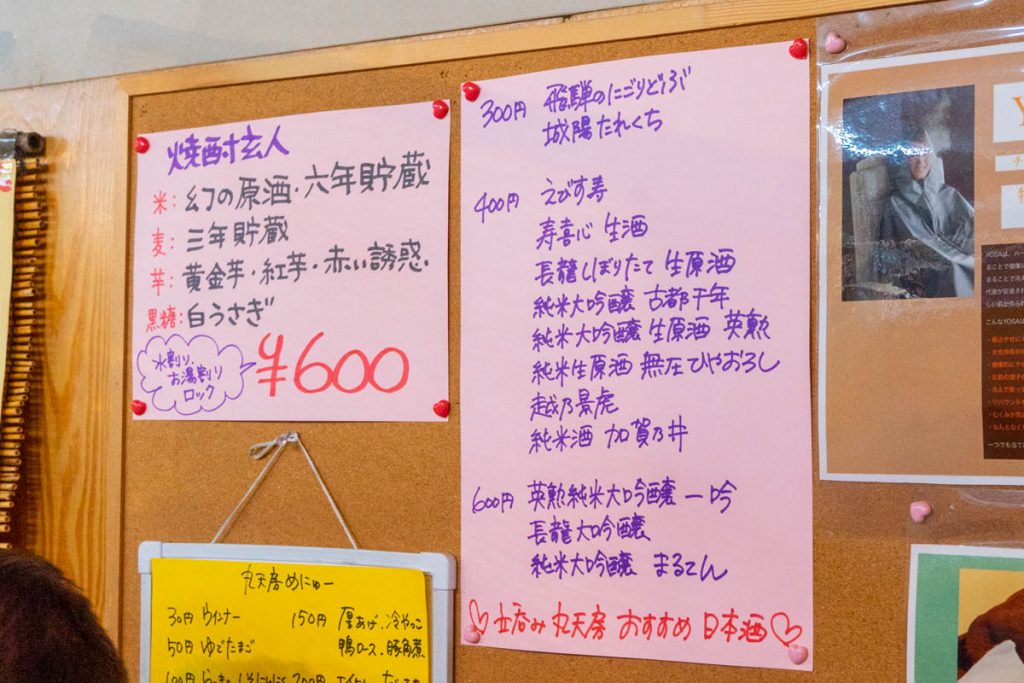 焼酎玄人
米:幻の原酒・六年貯蔵
麦:三年貯蔵
芋:黄金芋・紅芋・赤い誘惑
黒糖:白うさぎ
水割り、
お湯割り
ロック
¥600
300円 飛騨のにごりどぶ
城陽たれくち
400円 えびす寿
寿喜心 生酒
長龍しぼりたて 生原酒
純米大吟醸 古都千年
純米大吟醸 生原酒 英勲
純米生原酒 無圧ひやおろし
越乃景虎
純米酒 加賀乃井
600円 英勲純米大吟醸 一吟
長龍大吟醸
純米大吟醸 まるてん
立呑み 丸天房 おすすめ 日本酒
丸天房めにゅー
30円 ウインナー 150円 厚あげ、冷やっこ
50円 ゆでたまご 鴨ロース、豚角煮
100円 200円